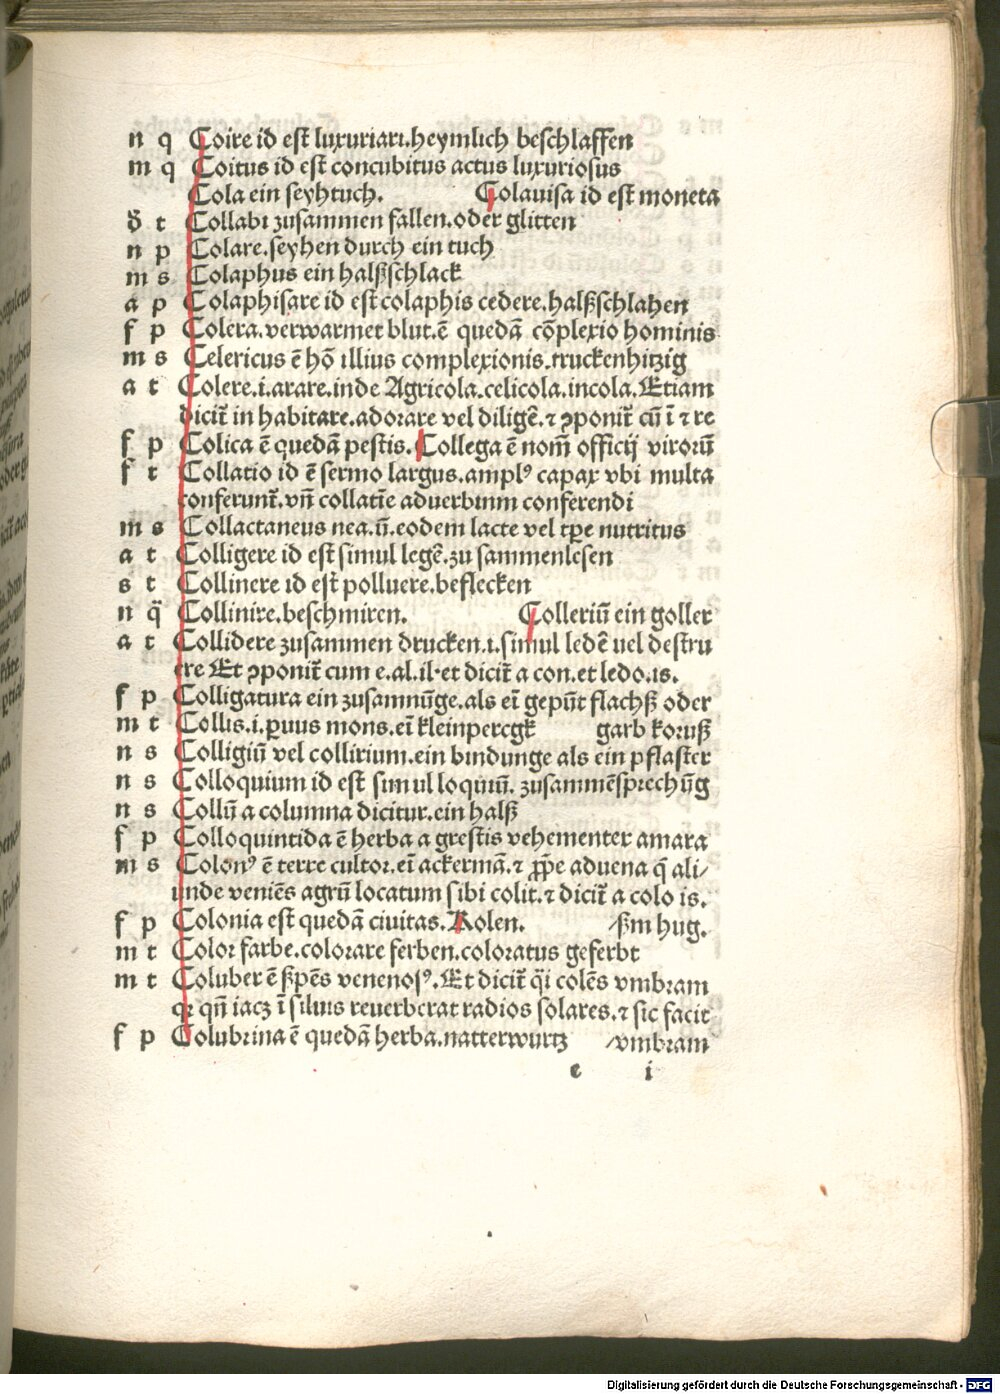 n q Coire id est luxuriari.heymlich beschlaffen
m q Coitus id est concubitus actus luxuriosus
Cola ein seyhtuch. Colauisa id est moneta
t Collabi zusammen fallen.oder glitten
n p Colare.seyhen durch ein tuch
m s Colaphus ein halßschlack
a p Colaphisare id est colaphis cedere.halßschlahen
f p Colera.verwarmet blut.ē quedā cōplexio hominis
m s Celericus ē hō illius complexionis.truckenhitzig
a t Colere.i.arare.inde Agricola.celicola.incola.Etiam
dicit̄ in habitare.adorare vel diligē.⁊ ꝯponit̄ cū ī ⁊ re
f p Colica ē quedā pestis. Collega ē nom̄ officij virorū
f t Collatio id ē sermo largus.amplꝰ capax vbi multa
conferunt̄.vn̄ collatīe aduerbium conferendi
m s Collactaneus nea.ū.eodem lacte vel tꝑe nutritus
a t Colligere id est simul legē.zu sammenlesen
s t Collinere id est polluere.beflecken
n q̄ Collinire.beschmiren. Colleriū ein goller
a t Collidere zusammen drucken.i.simul ledē uel destru
ere Et ꝯponit̄ cum e.al.il.et dicit̄ a con.et ledo.is.
f p Colligatura ein zusamnūge.als eī gepūt flachß oder
m t Collis.i.ꝑuus mons.eī kleinpercgk garb koruß
n s Colligiū vel collirium.ein bindunge als ein pflaster
n s Colloquium id est simul loquiū. zusammēsprechūg
n s Collū a columna dicitur.ein halß
f p Colloquintida ē herba a grestis vehementer amara
m s Colonꝰ ē terre cultor.eī ackermā.⁊ ꝓṗe aduena q̄ ali/
unde veniēs agrū locatum sibi colit.⁊ dicit̄ a colo is.
f p Colonia est quedā civitas.Kolen. /ßm hug.
m t Color farbe.colorare ferben.coloratus geferbt
m t Coluber ē ßpēs venenosꝰ.Et dicit̄ q̄i colēs vmbram
qꝛ qn̄ iacꝫ ī siluis reuerberat radios solares.⁊ sic facit
f p Colubrina ē quedā herba.natterwurtz /vmbram
e i
Digitalisierung gefördert durch die Deutsche Forschungsgemeinschaft - DFG